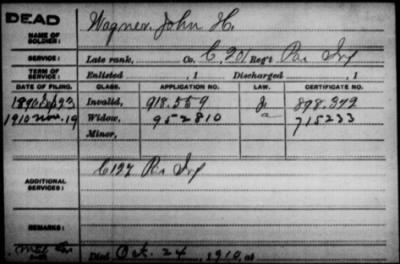 DEAD
NAME OF SOLDIER: Wagner, John H.
SERVICE: Late rank, Co. C, 201 Reg't Pa Inf
TERM OF SERVICE: Enlisted , 1 Discharged , 1
DATE OF FILING. CLASS. APPLICATION NO. LAW. CERTIFICATE NO.
1890 Invalid, 918.559 898.372
1910 Nov. 19 Widow, 952810 a 715233
Minor,
ADDITIONAL SERVICES: C 127 Pa Inf
REMARKS:
Died Oct. 24, 1910, at